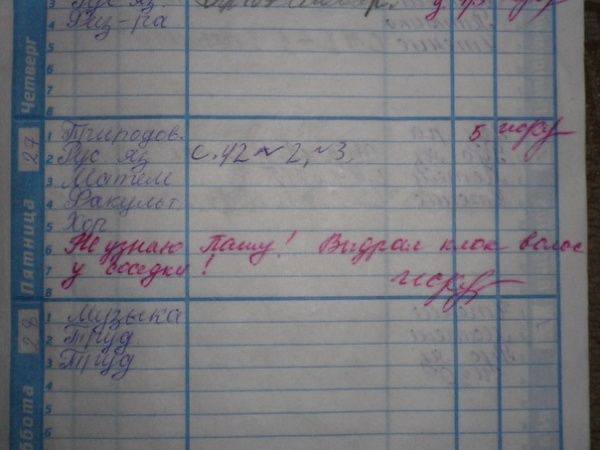 3 Рус яз.
4 Физ-ра
Четверг
1 Природов. 5
2 Рус яз с. 42 № 2, № 3.
3 Матем
4 Факульт.
5 Хор
6 Не узнаю Пашу! Выдрал клок волос
7 у соседки!
8
Пятница 27
1 Музыка
2 Труд
3 Труд
4
5
6
28
ббота